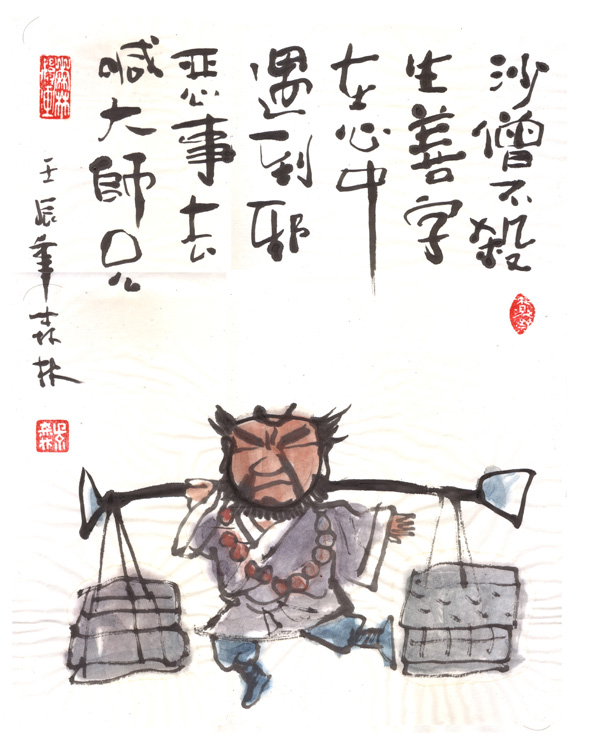 沙僧不殺
生善字
在心中
遇到邪
恶事去
喊大師兄
壬辰年森林